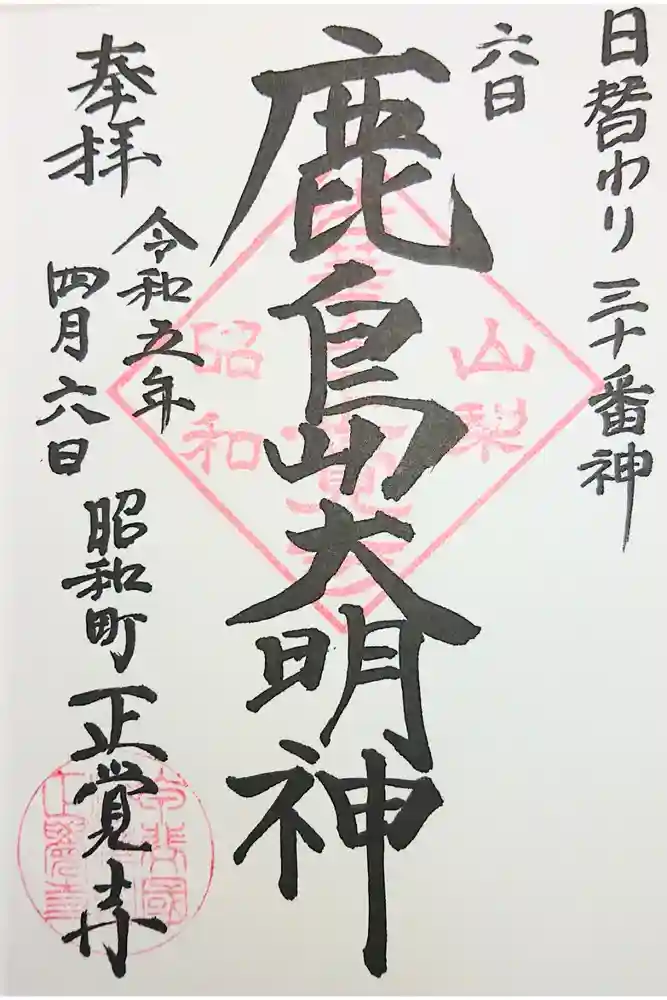 日替わり三十番神
六日
鹿島大明神
奉拝
令和五年
四月六日
昭和町
正覚寺
山梨
昭和